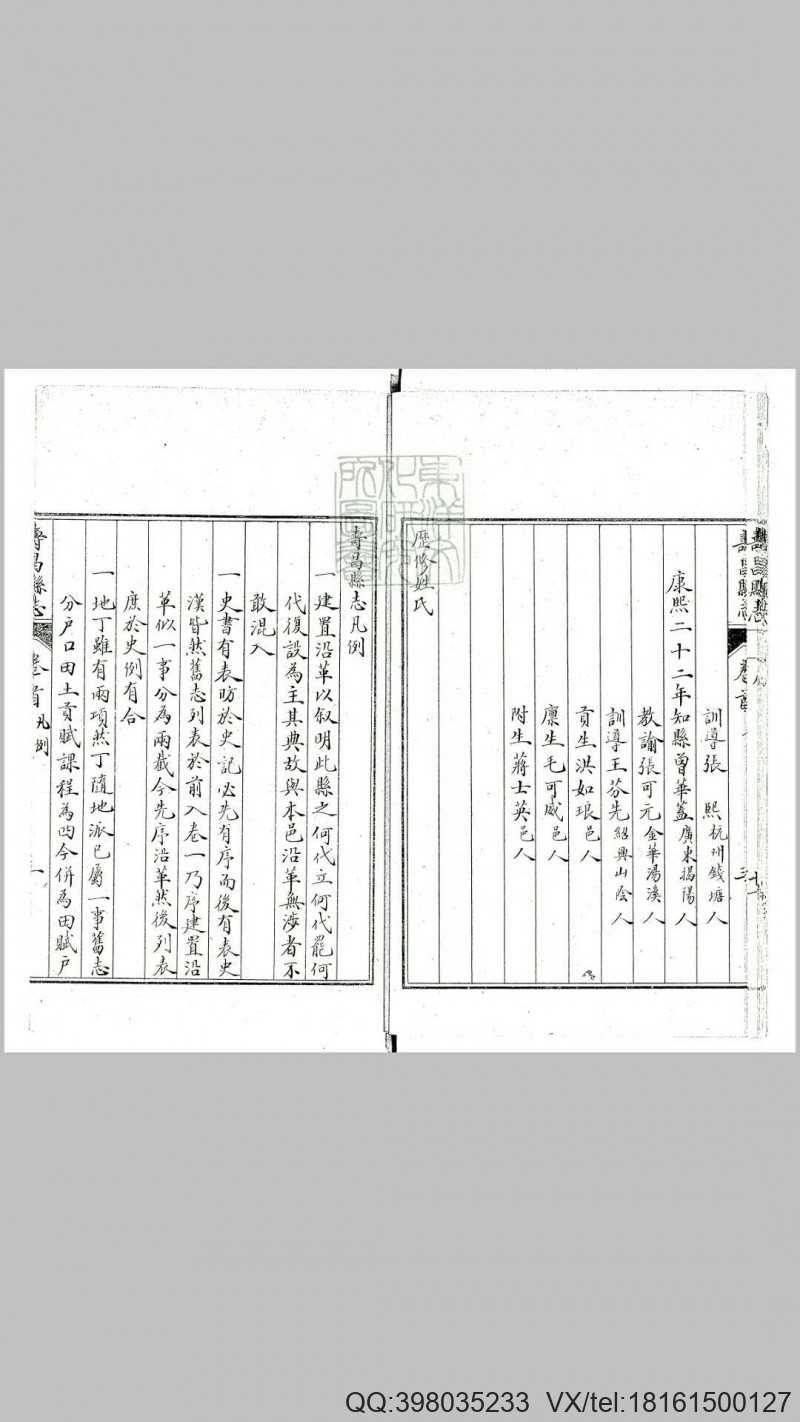 壽昌縣志
卷首
訓導張　熙杭州錢塘人
康熙二十二年知縣曾華蓋廣東揭陽人
教諭張可元金華湯溪人
訓導王芬先紹興山陰人
貢生洪如琅邑人
廪生毛可威邑人
附生蔣士英邑人
歷修姓氏
壽昌縣志凡例
一建置沿革以叙明此縣之何代立何代罷何
代復設為主其典故與本邑沿革無涉者不
敢混入
一史書有表昉於史記必先有序而後有表史
漢皆然舊志列表於前入卷一乃序建置沿
革似一事分為兩截今先序沿革然後列表
庶於史例有合
一地丁雖有兩項然丁隨地派已屬一事舊志
分户口田土貢賦課程為四今併為田賦户
壽昌縣志
卷首凡例
一
QQ:398035233 VX/tel:18161500127